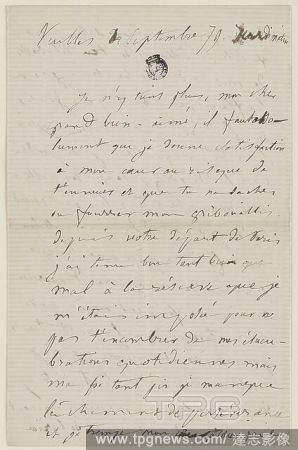 Veulles 2 Septembre 79.
Je n'y tiens plus, mon cher
grand bien-aimé, il faut abso-
lument que je donne satisfaction
à mon cœur au risque de
t'ennuier et que tu ne saches
où fourrer mon gribouillis.
depuis votre départ de Paris
j'ai tenu bon tant bien que
mal à la réserve que je
m'étais imposée pour ne
pas t'encombrer de mes élucu-
brations quotidiennes mais
ma foi tant pis je
et je trempe ma
TPG
www.tpgnews.com/達志影像